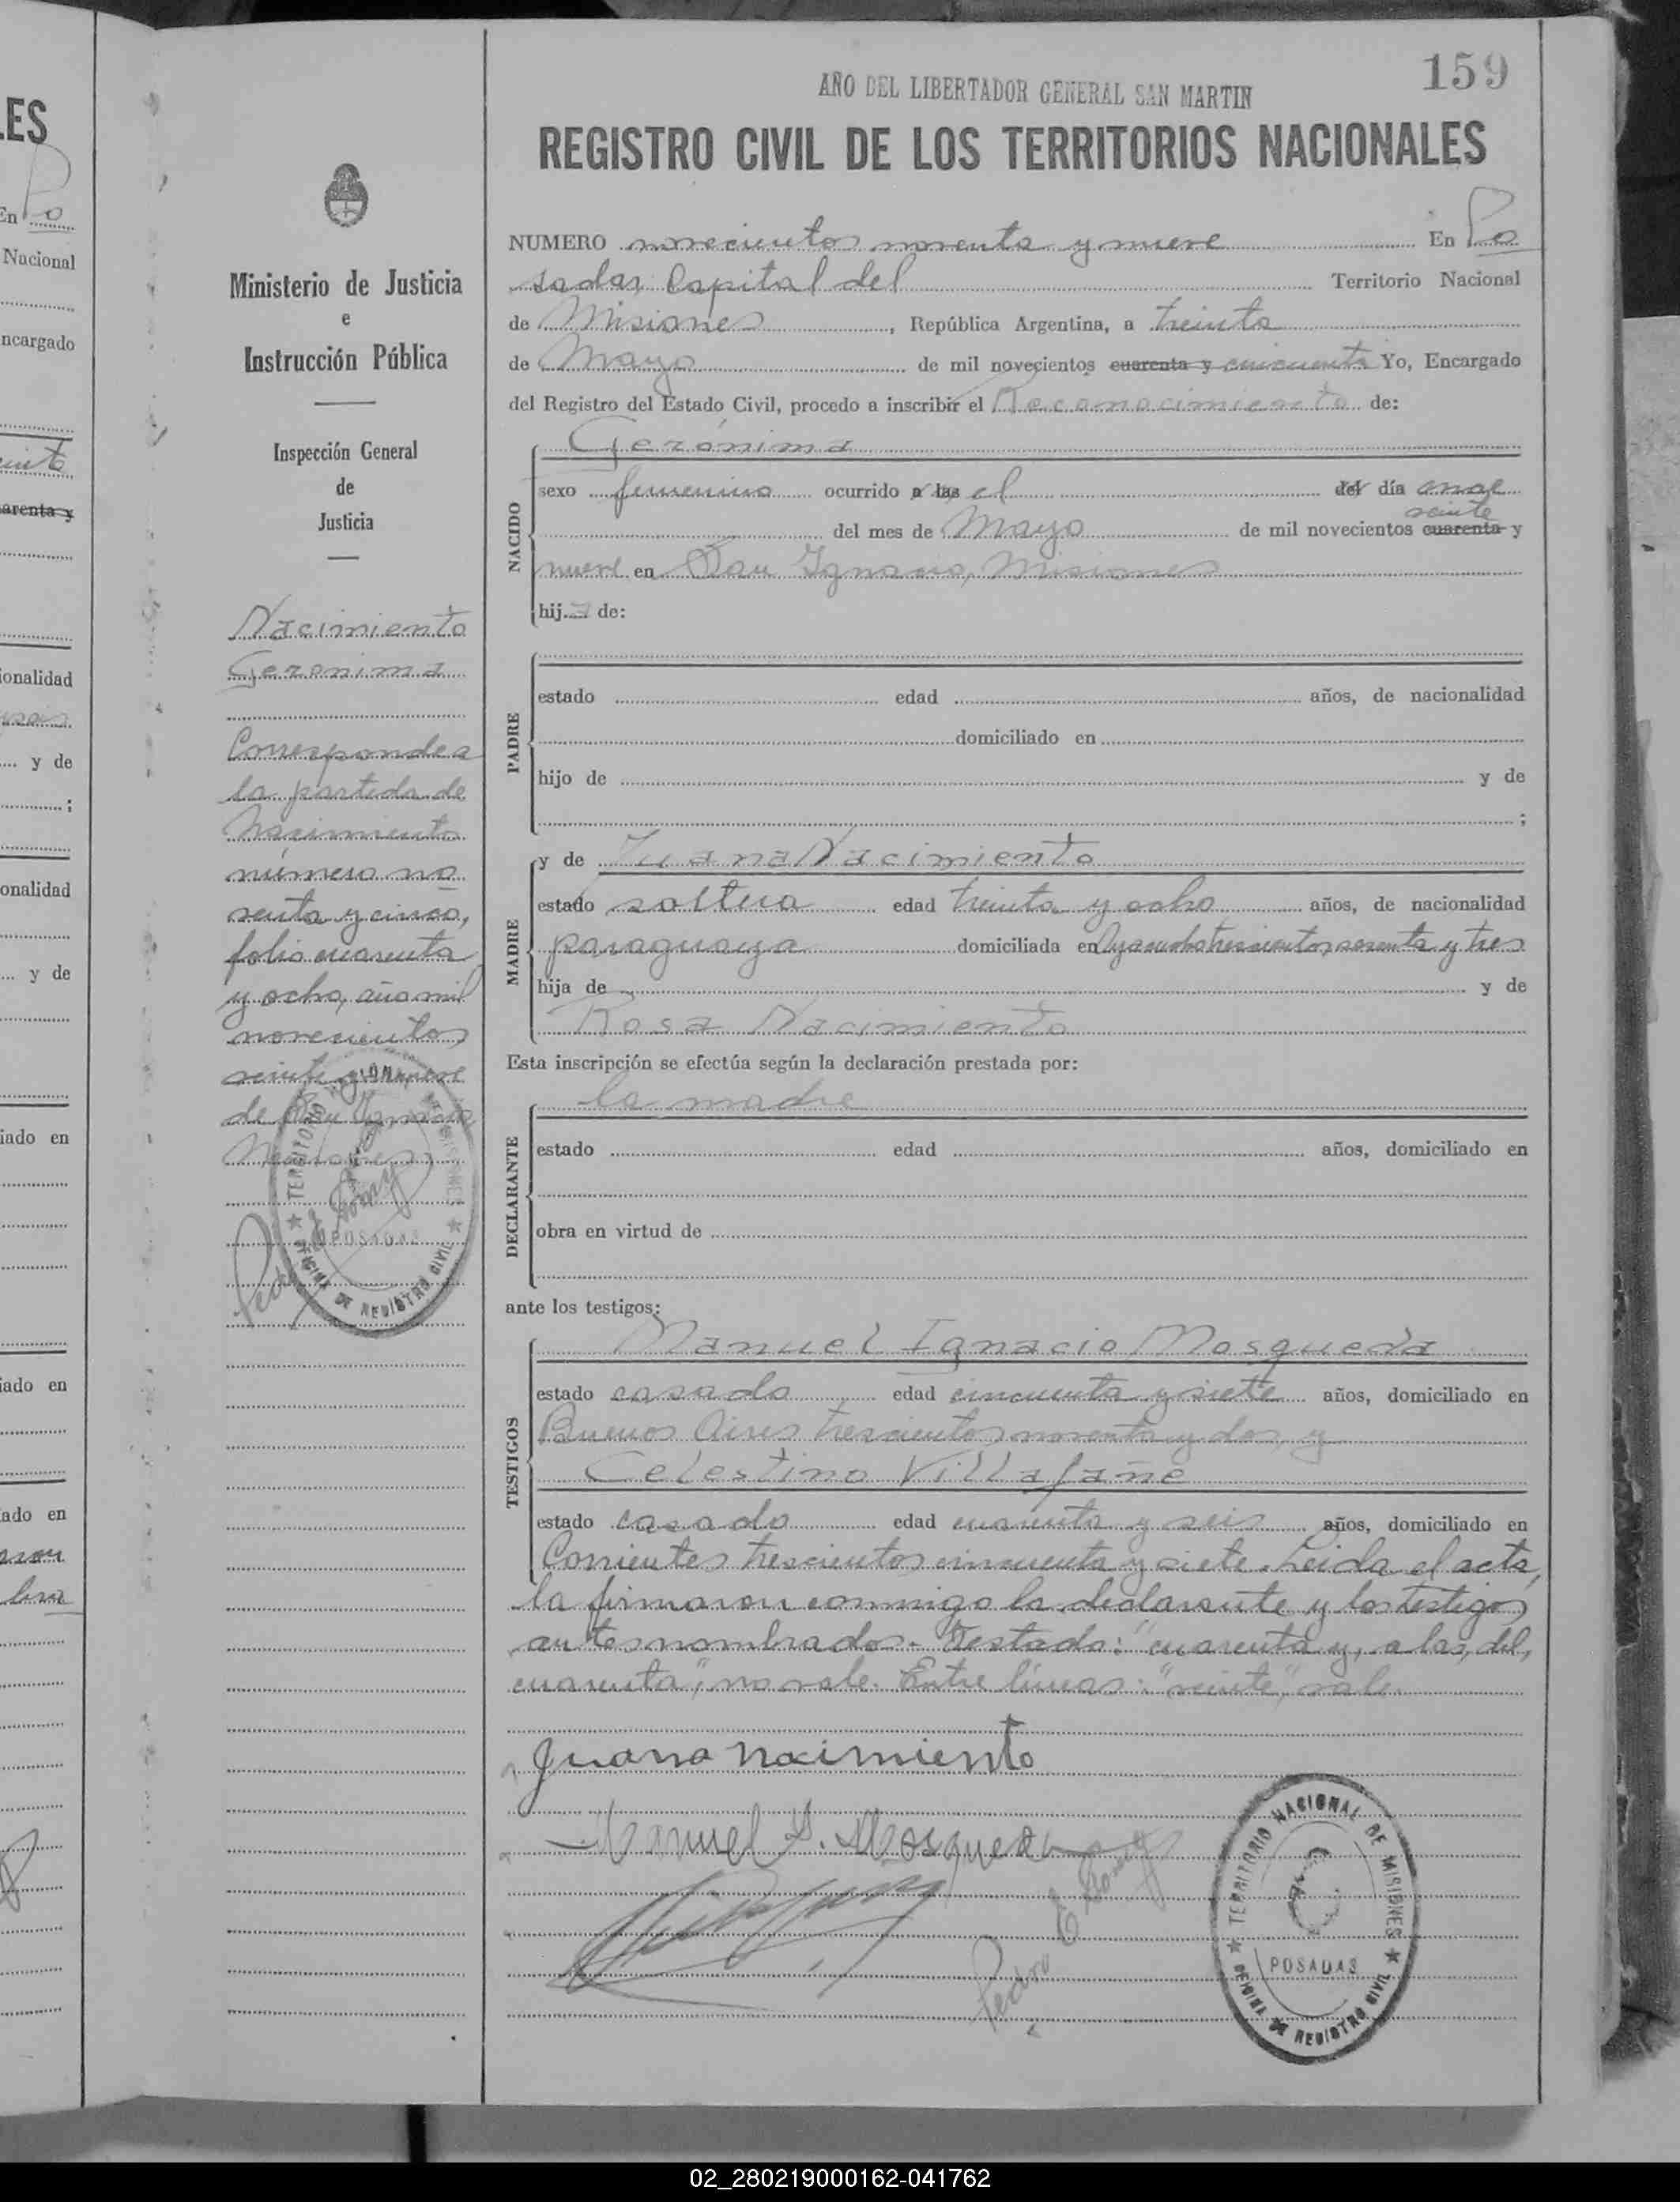 159
AÑO DEL LIBERTADOR GENERAL SAN MARTIN
REGISTRO CIVIL DE LOS TERRITORIOS NACIONALES
NUMERO novecientos noventa y nueve En Po
sadas, Capital del Territorio Nacional
de Misiones, República Argentina, a treinta
de Mayo de mil novecientos cuarenta y cincuenta Yo, Encargado
del Registro del Estado Civil, procedo a inscribir el Reconocimiento de:
NACIDO
Gerónima
sexo femenino ocurrido a las el del día once
veinte
del mes de Mayo de mil novecientos cuarenta y
nueve en San Ignacio, Misiones
hija de:
PADRE
estado edad años, de nacionalidad
domiciliado en
hijo de y de
;
MADRE
y de Juana Nacimiento
estado soltera edad treinta y ocho años, de nacionalidad
paraguaya domiciliada en Ayacucho trescientos sesenta y tres
hija de y de
Rosa Nacimiento
Esta inscripción se efectúa según la declaración prestada por:
DECLARANTE
la madre
estado edad años, domiciliado en
obra en virtud de
ante los testigos:
TESTIGOS
Manuel Ignacio Mosqueda
estado casado edad cincuenta y siete años, domiciliado en
Buenos Aires trescientos noventa y dos, y
Celestino Villafañe
estado casado edad cuarenta y seis años, domiciliado en
Corrientes trescientos cincuenta y siete. Leida el acta,
la firmaron conmigo la declarante y los testigos
antes nombrados. Testado: "cuarenta y, a las, del,
cuarenta", no vale. Entre líneas: "veinte", vale.
Juana nacimiento
Manuel I. Mosqueda
Pedro E
TERRITORIO NACIONAL DE MISIONES
POSADAS
OFICINA DE REGISTRO CIVIL
Ministerio de Justicia
e
Instrucción Pública
Inspección General
de
Justicia
Nacimiento
Geronima
Corresponde a
la partida de
Nacimiento
número no
venta y cinco,
folio cuarenta
y ocho, año mil
novecientos
veinte y nueve
de San Ignacio
Misiones
TERRITORIO NACIONAL DE MISIONES
POSADAS
OFICINA DE REGISTRO CIVIL
LES
En Po
Nacional
ncargado
arenta y
ionalidad
y de
;
onalidad
y de
iado en
iado en
ado en
02_280219000162-041762